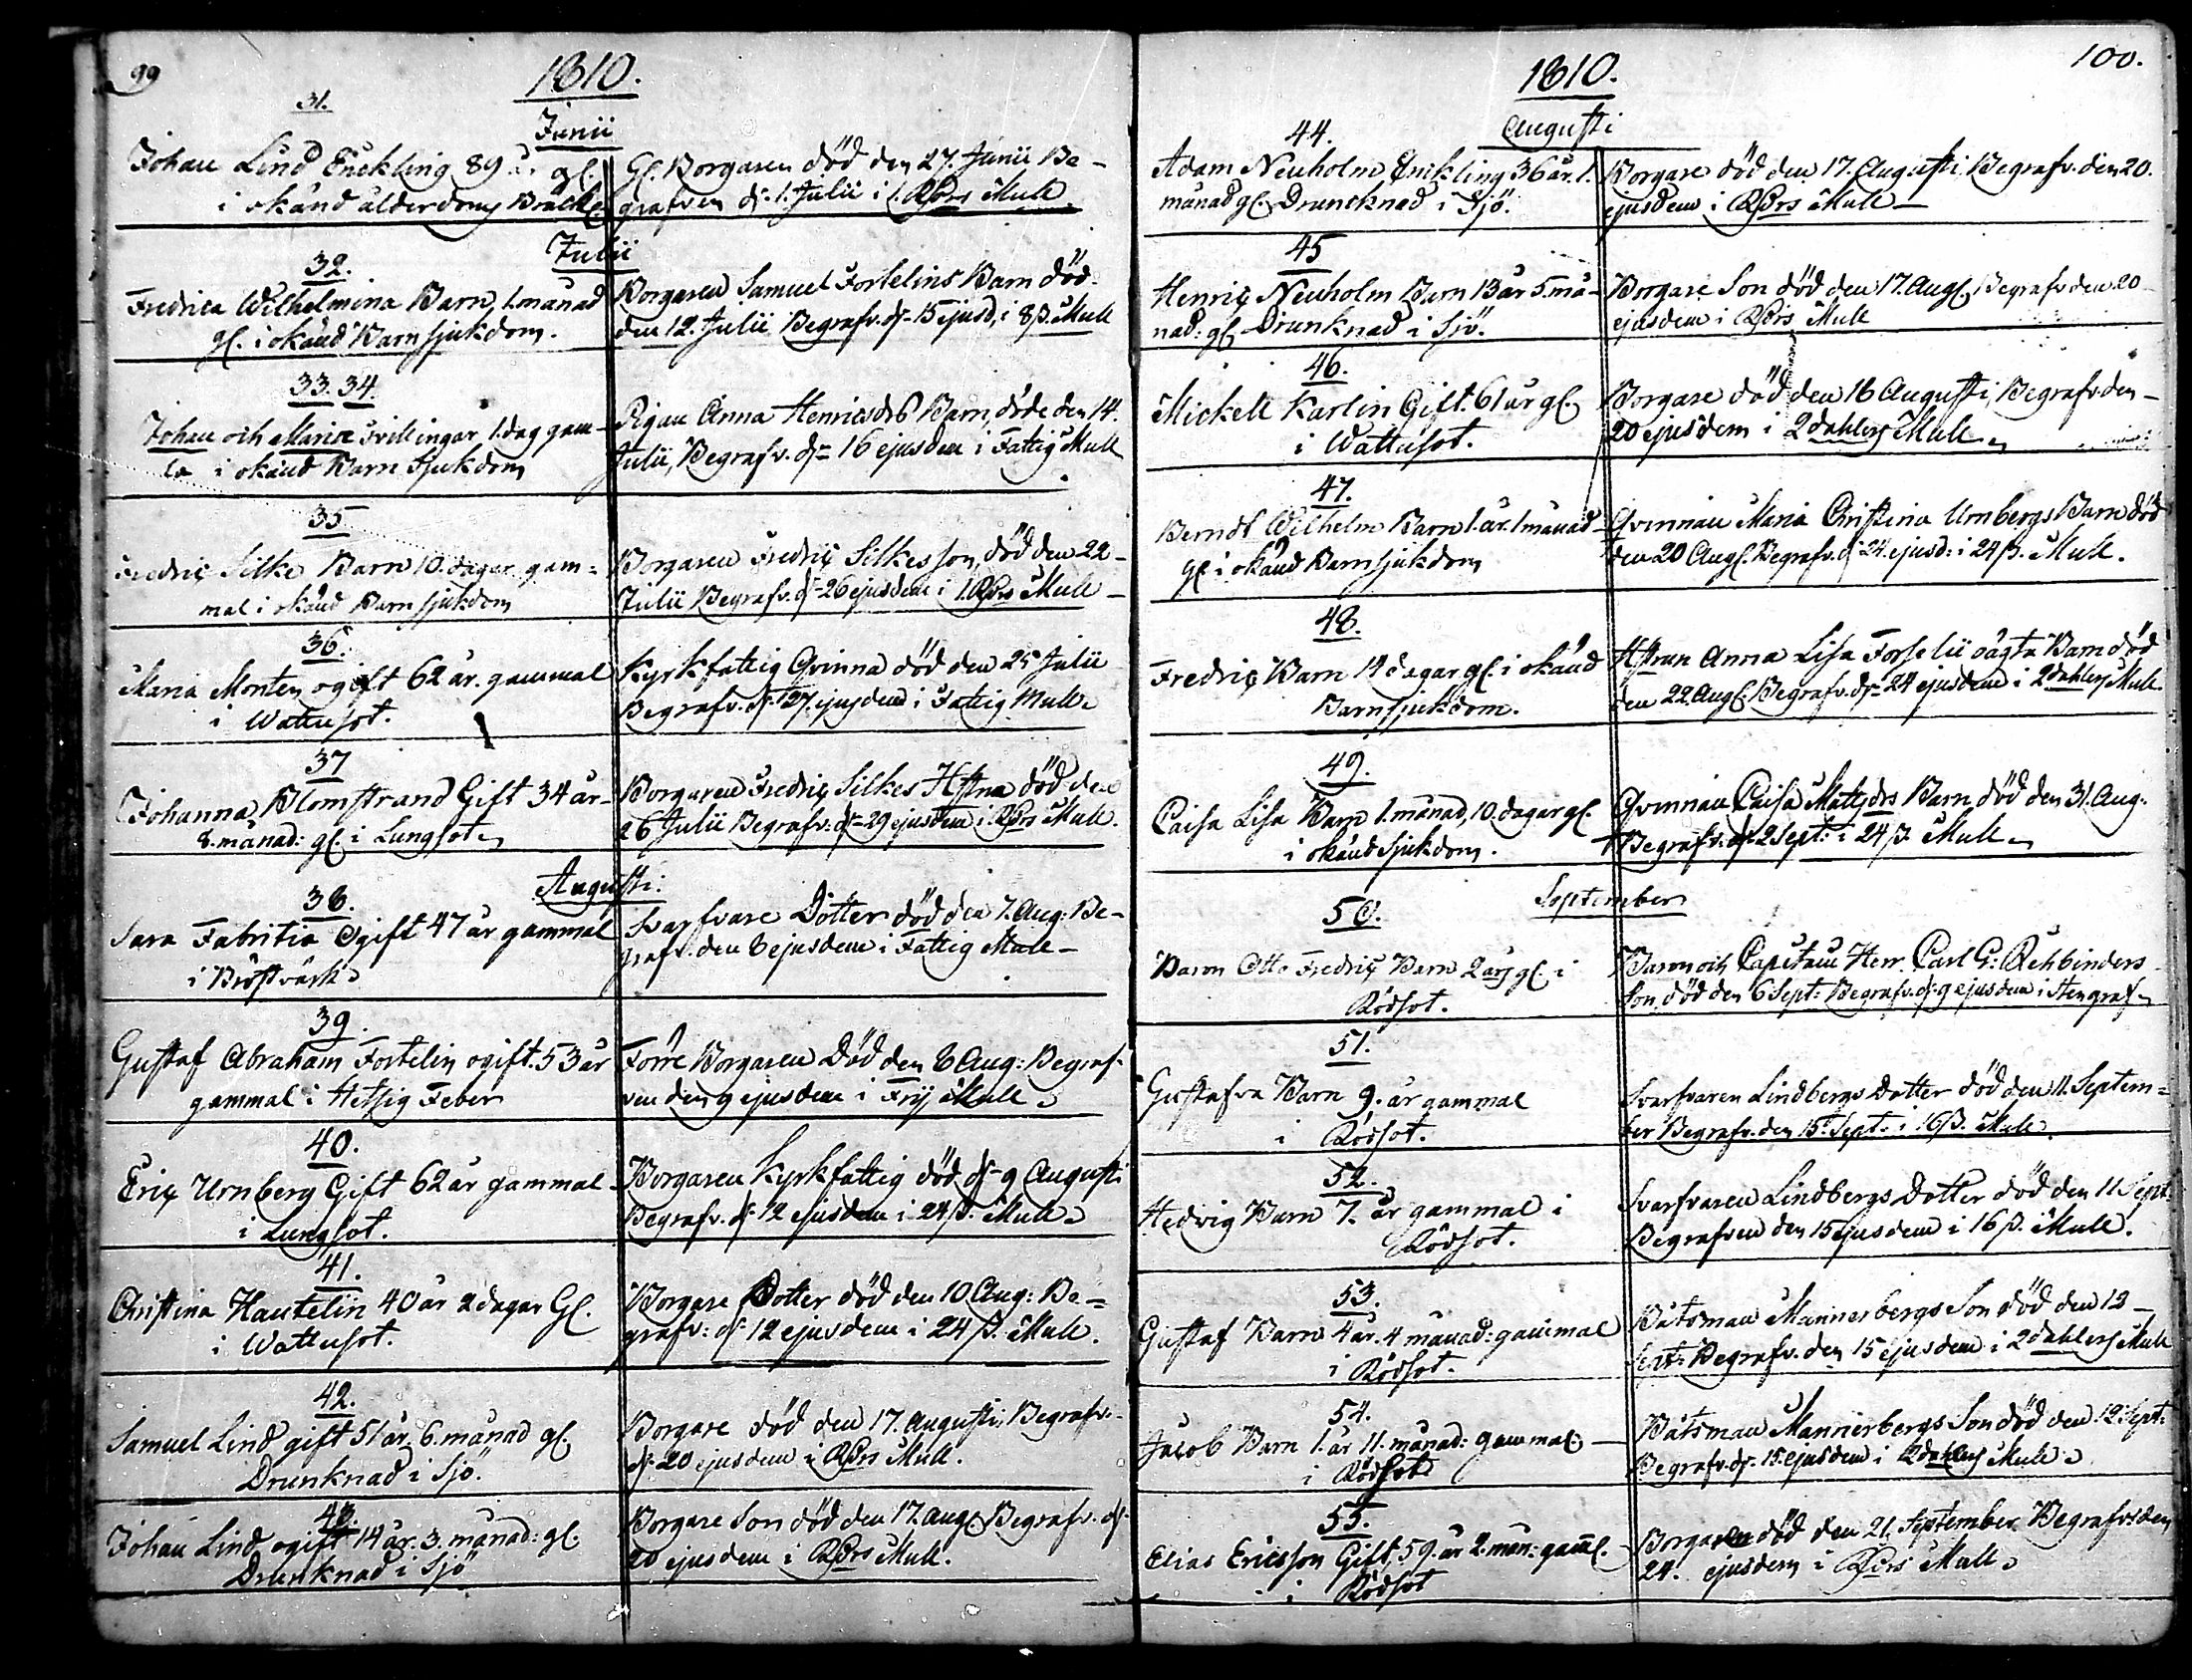 99
1810.
31.
Junii
Johan Lind Enckling 89 år gl.
i okänd ålderdoms Bräckl.
Gl. Borgaren död den 27. Junii Be-
grafven d: 1. Julii i 1. RDrs Mull
Julii
32.
Fredrica Wilhelmina Barn, 1. månad
gl. i okänd Barnsjukdom.
Borgaren Samuel Fortelins Barn död
den 12. Julii Begrafv. d: 15 ejusd, i 8 ß. Mull
33. 34.
Johan och Maria Tvillingar 1. dag gam-
la i okänd Barn Sjukdom
Pigan Anna Henricsdrs Barn, döde den 14.
Julii, Begrafv. d: 16 ejusdem i Fattig Mull
35
Fredriç Silke Barn 10. dagar gam-
mal i okänd Barnsjukdom
Borgaren Fredriç Silkes son, död den 22-
Julii Begrafv. d: 26 ejusdem i 1. RDrs Mull
36.
Maria Monten ogift 62 år. gammal
i Wattusot.
Kyrkfattig Qvinna död den 25 Julii
Begrafv. d: 27. ejusdem i Fattig Mull
37
Johanna Blomstrand Gift 34 år
8. månad: gl. i Lungsot
Borgaren Fredriç Silkes Hstna död den
26 Julii Begrafv. d: 29 ejusdem i RDrs Mull.
Augusti:
38.
Sara Fabritia Ogift 47 år gammal
i Bröstvärk
Svarfvare Dotter död den 7. Aug: Be-
grafv. den 8 ejusdem i Fattig Mull
39.
Gustaf Abraham Fortelin ogift. 53 år
gammal i Hetsig Feber
Förre Borgaren Död den 6 Aug: Begraf-
ven den 9 ejusdem i Frÿ Mull
40.
Eriç Urnberg Gift 62 år gammal
i Lungsot.
Borgaren Kyrkfattig död d: 9 Augusti
Begrafv. d: 12 ejusdem i 24 ß. Mull
41.
Christina Hautelin 40 år 2 dagar Gl.
i Wattusot.
Borgare Dotter död den 10 Aug: Be-
grafv: d: 12 ejusdem i 24 ß. Mull.
42.
Samuel Lind gift 51 år, 6. månad gl.
Drunknad i Sjö.
Borgare död den 17. Augusti, Begrafv.
d: 20 ejusdem i RDrs Mull.
43.
Johan Lind ogift 14 år. 3. månad: gl.
Drunknad i Sjö
Borgare Son död den 17. Aug. Begrafv. d:
20 ejusdem i RDrs Mull.
100.
1810.
Augusti
44.
Adam Neuholm Enkling 36 år. 1.
månad gl. Druncknad i Sjö.
Borgare död den 17. Augusti, Begrafv. den 20.
ejusdem i RDrs Mull
45
Henriç Neuholm Barn 13 år 5. må-
nad: gl. Drunknad i Sjö.
Borgare Son död den 17. Aug. Begrafv den 20
ejusdem i RDrs Mull
46.
Mickell Karlin Gift. 61 år gl.
i Wattusot.
Borgare död den 16 Augusti, Begrafv. den
20 ejusdem i 2 dahlers Mull
47.
Berndt Wilhelm Barn 1. år. 1 månad
gl. i okänd Barnsjukdom
Qvinnan Maria Christina Urnbergs Barn död
den 20 Aug. Begrafv. d: 24. ejusd: i 24 ß. Mull.
48.
Fredriç Barn 14 dagar gl. i okänd
Barnsjukdom.
Hstrun Anna Lisa Forselii oägta Barn död
den 22. Aug. Begrafv. d: 24 ejusdem i 2 dahlers Mull
49.
Caisa Lisa Barn 1. månad, 10. dagar gl.
i okänd Sjukdom.
Qvinnan Caisa Mattsdrs Barn död den 31. Aug:
Begrafv: d: 2 Sept: i 24 ß. Mull
September
50.
Baron Otto Fredriç Barn 2 års gl. i
Rödsot.
Baron och Capitain Herr Carl G: Rehbinders
Son, död den 6 Sept: Begrafv. d: 9 ejusdem i Stengraf
51.
Gustafva Barn 9. år gammal
i Rödsot.
Svarfvaren Lindbergs Dotter död den 11. Septem-
ber Begrafv. den 15. Sept. i 16 ß. Mull
52.
Hedvig Barn 7. år gammal i
Rödsot.
Svarfvaren Lindbergs Dotter död den 11 Sept:
Begrafven den 15 ejusdem i 16 ß. Mull.
53.
Gustaf Barn 4 år. 4 månad: gammal
i Rödsot.
Båtsman Mannerbergs Son död den 12
Sept: Begrafv. den 15 ejusdem i 2 dahlers Mull
54.
Jacob Barn 1. år 11. månad: gammal
i Rödsot
Båtsman Mannerbergs Son död den 12 Sept:
Begrafv. d: 15. ejusdem i 2 dahlers Mull
55.
Elias Ericsson Gift, 59. år 2. mån: gaml.
i Rödsot
Borgaren död den 21. September Begrafv: den
24. ejusdem i RDrs Mull